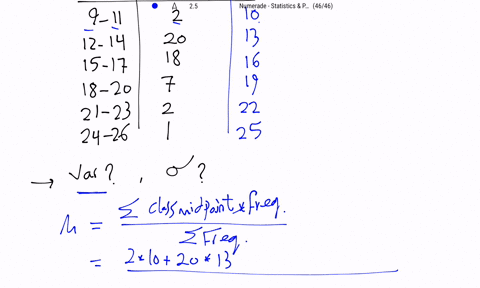 2.5 Numerade - Statistics & P... (46/46)
9-11 2 10
12-14 20 13
15-17 18 16
18-20 7 19
21-23 2 22
24-26 1 25
→ Var? , σ?
μ = Σ class midpoint * freq.
Σ Freq.
= 2*10 + 20*13